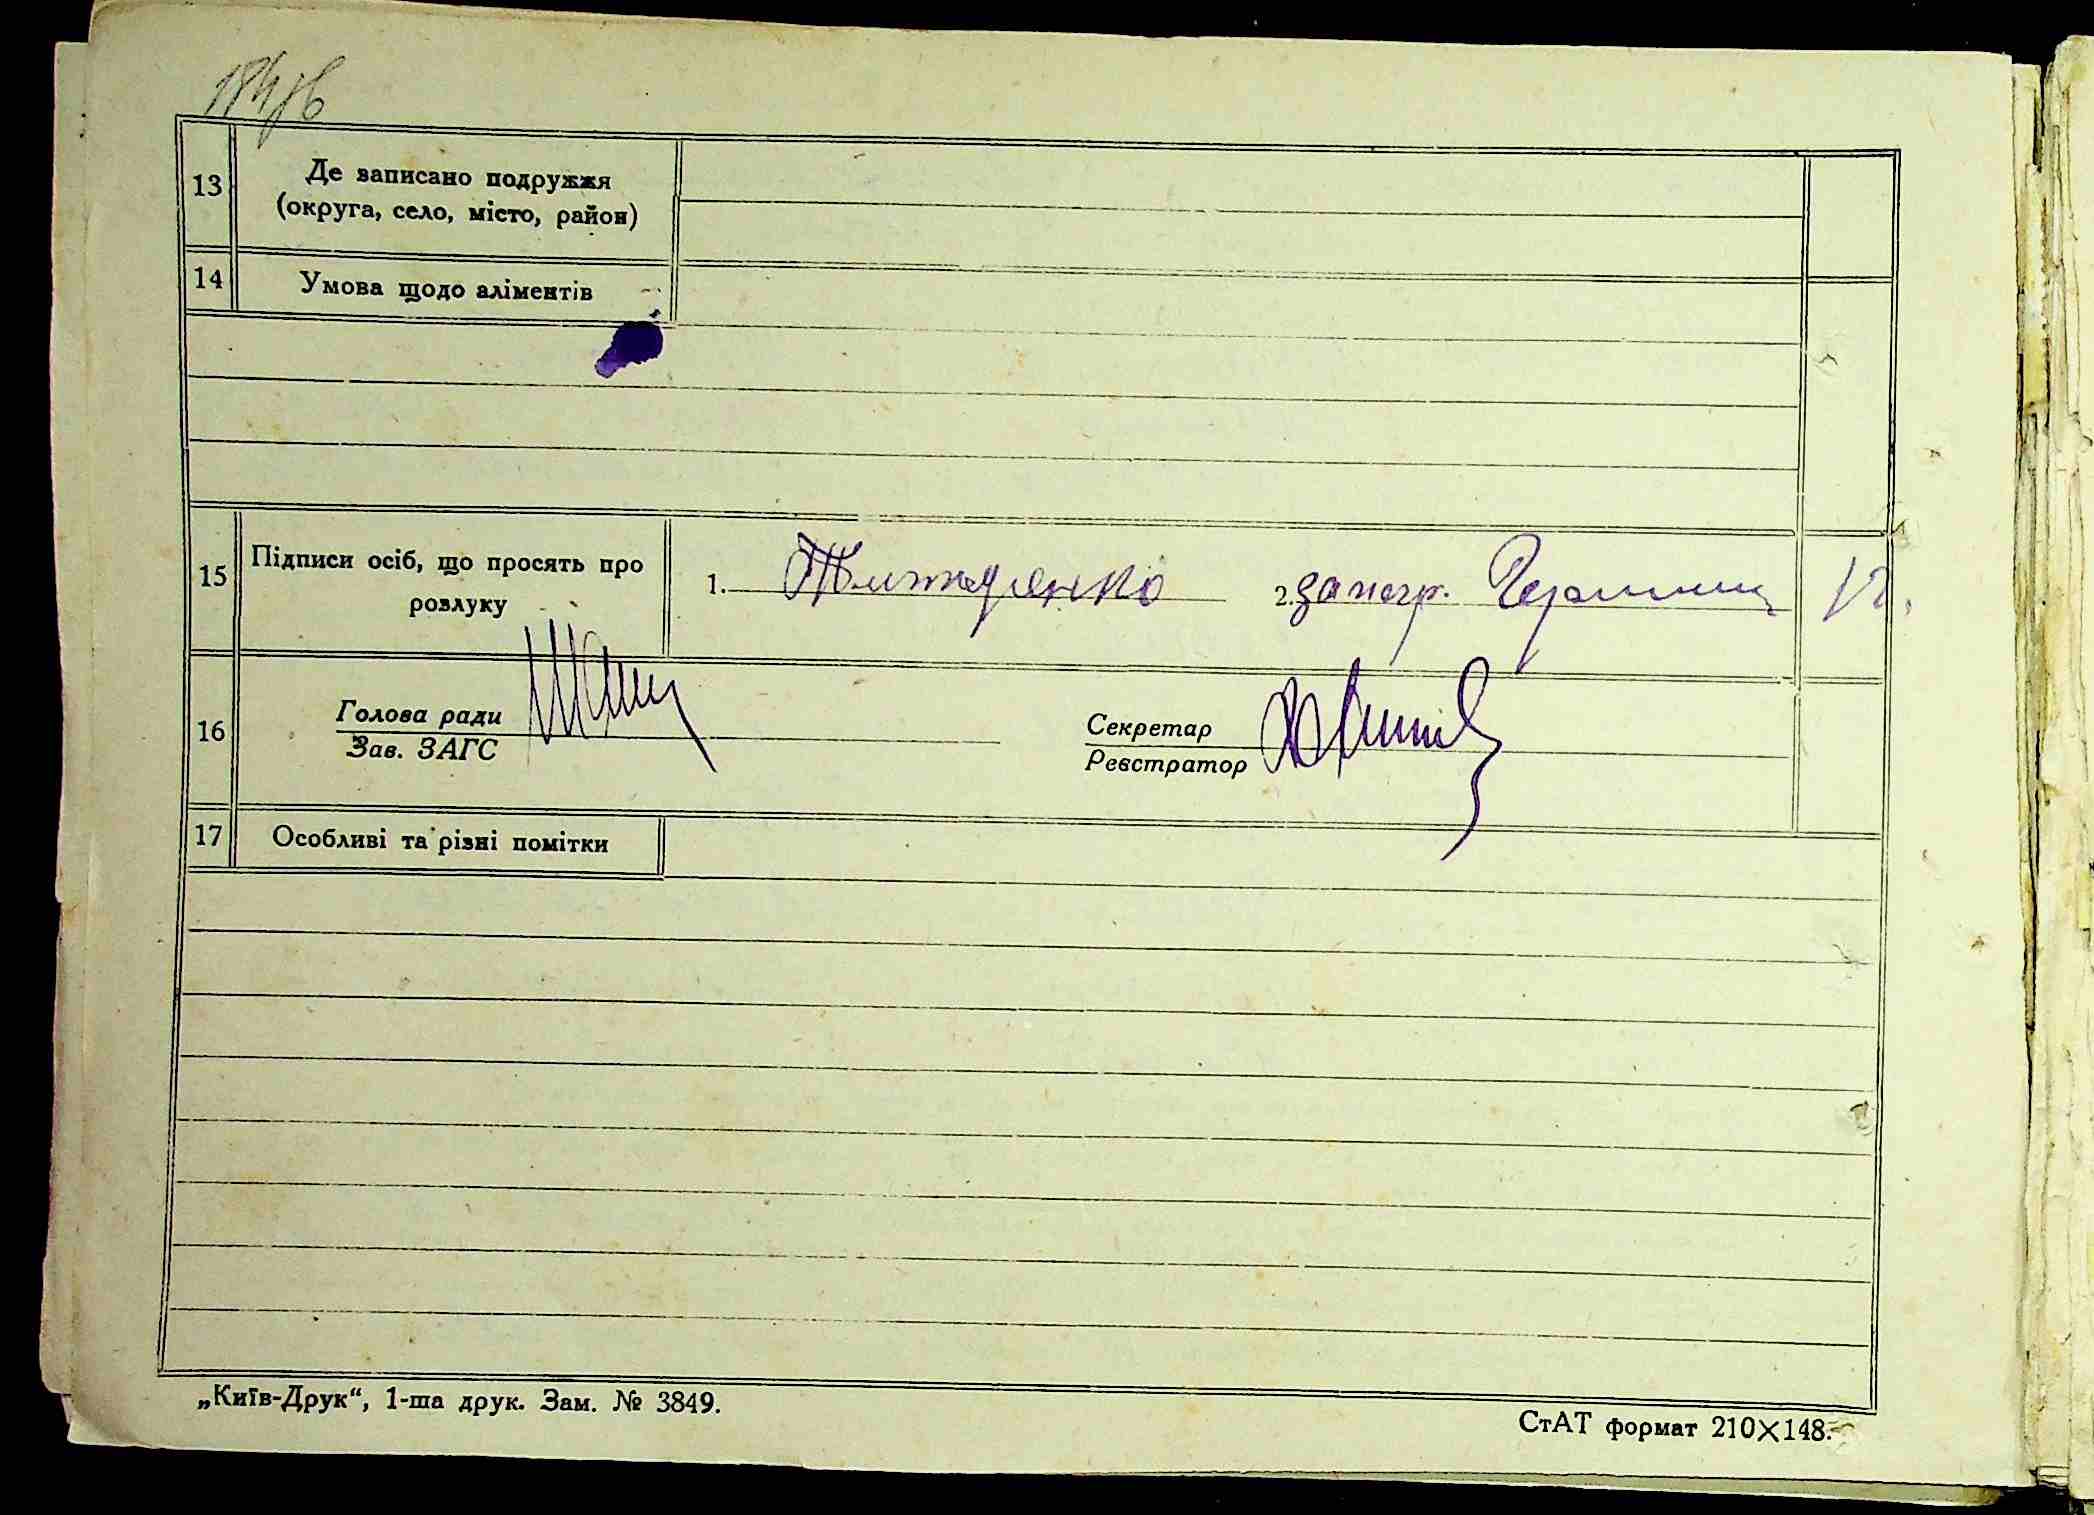 13
Де записано подружжя
(округа, село, місто, район)
14
Умова щодо аліментів
15
Підписи осіб, що просять про
розлуку
1.
2. за негр.
16
Голова ради
Зав. ЗАГС
Секретар
Реєстратор
17
Особливі та різні помітки
„Київ-Друк“, 1-ша друк. Зам. № 3849.
СтАТ формат 210×148.